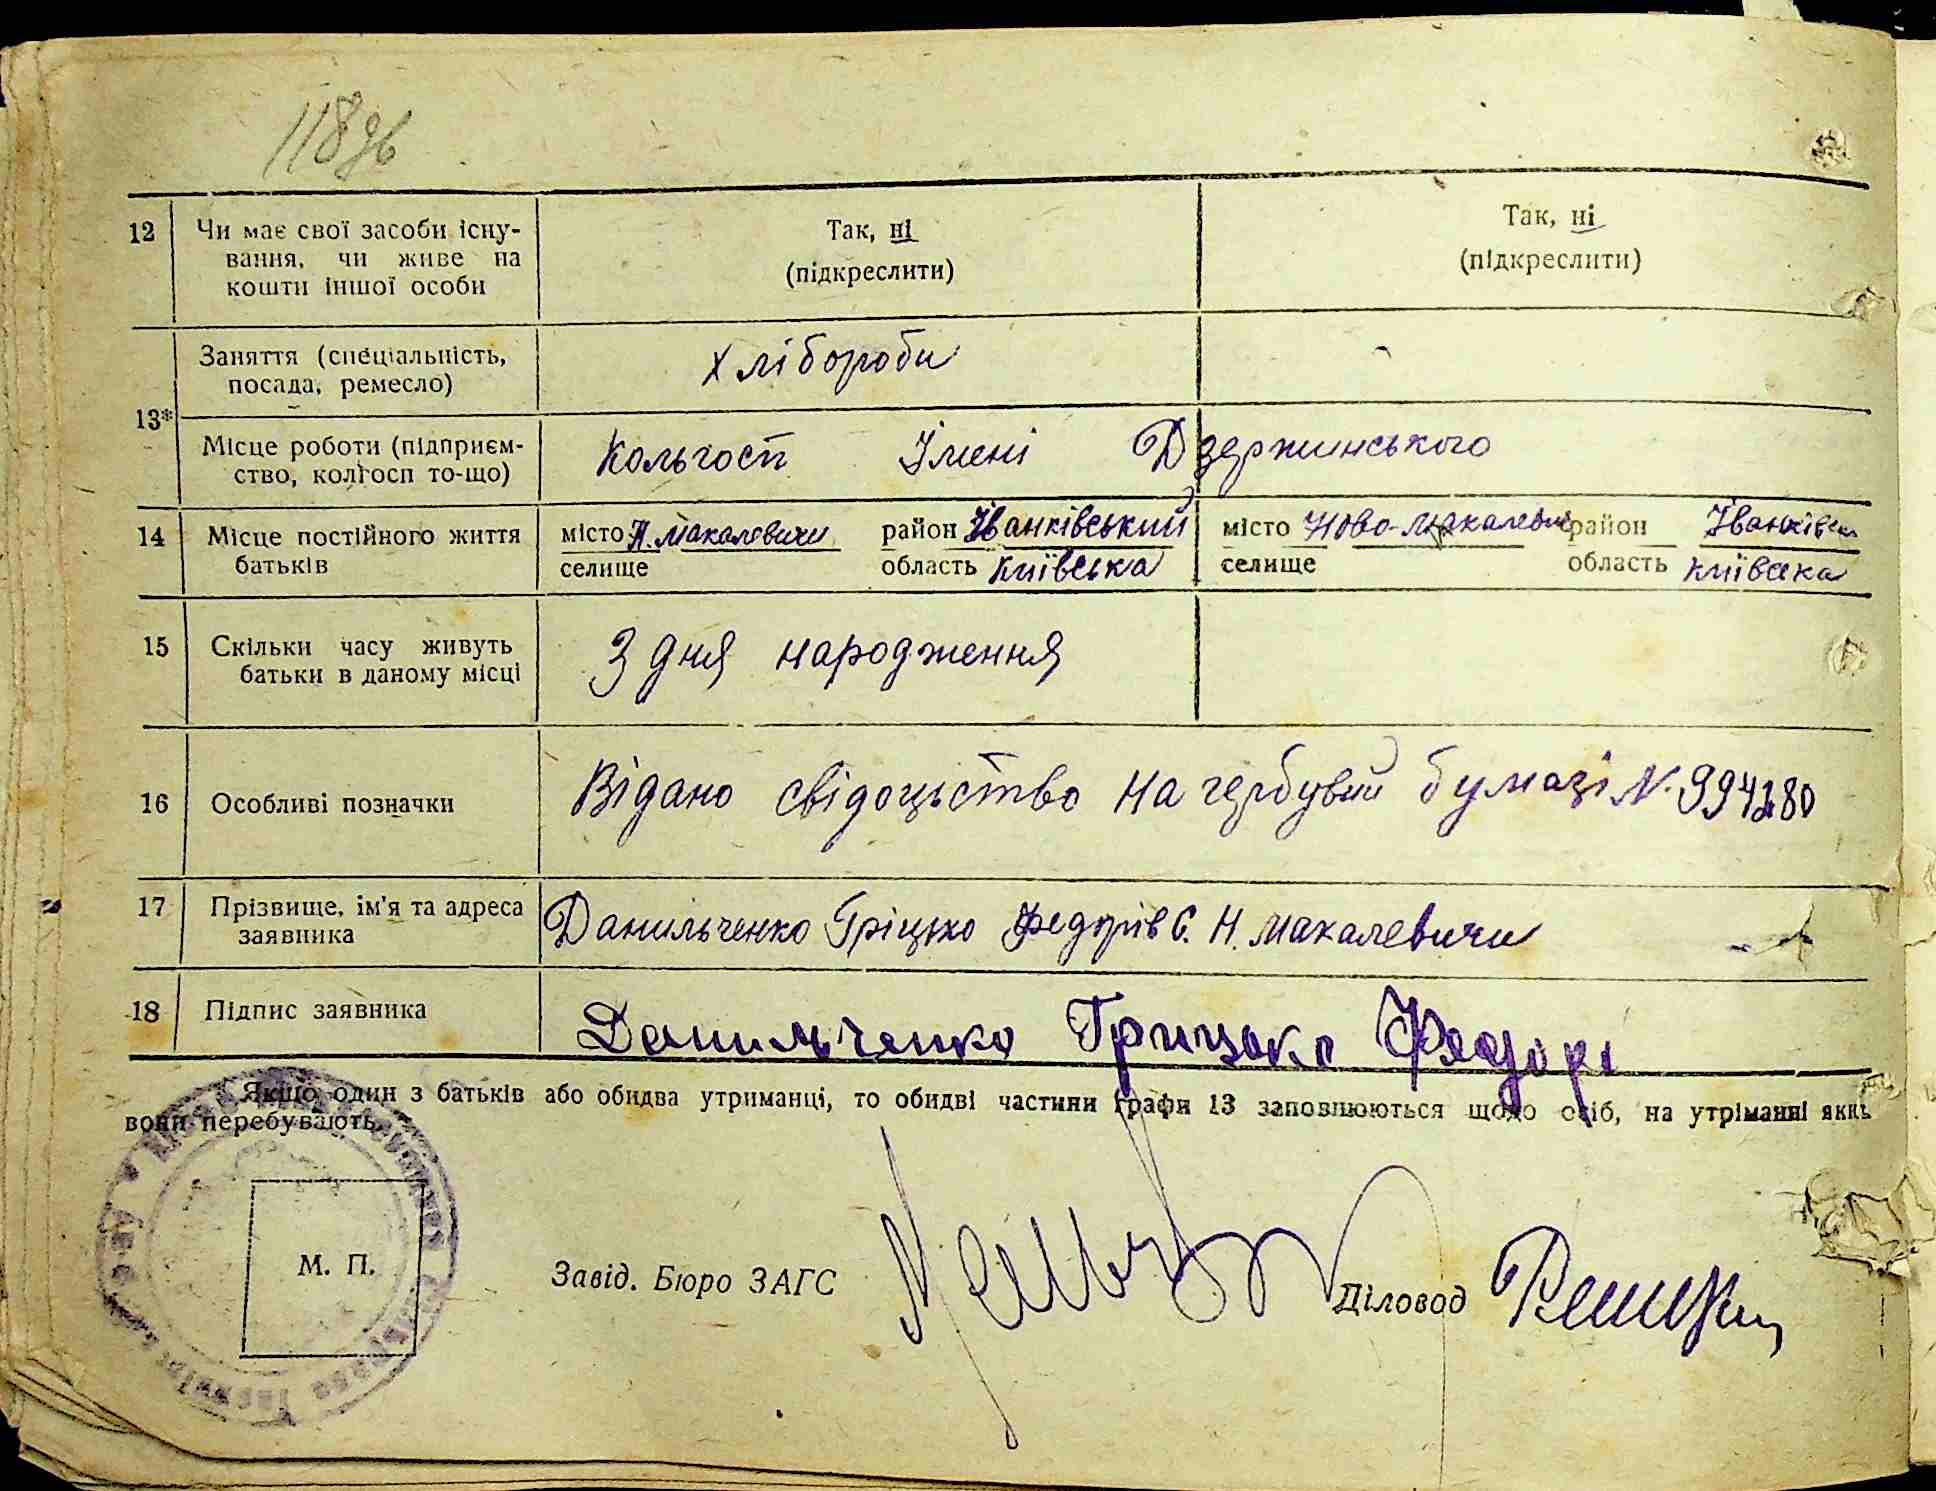 118зв
12 Чи має свої засоби існу- Так, ні Так, ні
вання, чи живе на (підкреслити) (підкреслити)
кошти іншої особи
13* Заняття (спеціальність, Хлібороби
посада, ремесло)
Місце роботи (підприєм- Кольгосп Імені Дзержинського
ство, колгосп то-що)
14 Місце постійного життя місто Н. Макалевичи район Іванківський місто Ново-Макалевичі район Іванківськ
батьків селище область Київська селище область Київська
15 Скільки часу живуть З дня народження
батьки в даному місці
16 Особливі позначки Відано свідоцьство на гербувий бумазі N. 994280
17 Прізвище, ім'я та адреса Данильченко Гріцько Федорів С. Н. Макалевичи
заявника
18 Підпис заявника Данильченко Грицько Федорі
Якщо один з батьків або обидва утриманці, то обидві частини графи 13 заповнюються щодо осіб, на утріманні яких
вони перебувають.
М. П.
Завід. Бюро ЗАГС Діловод